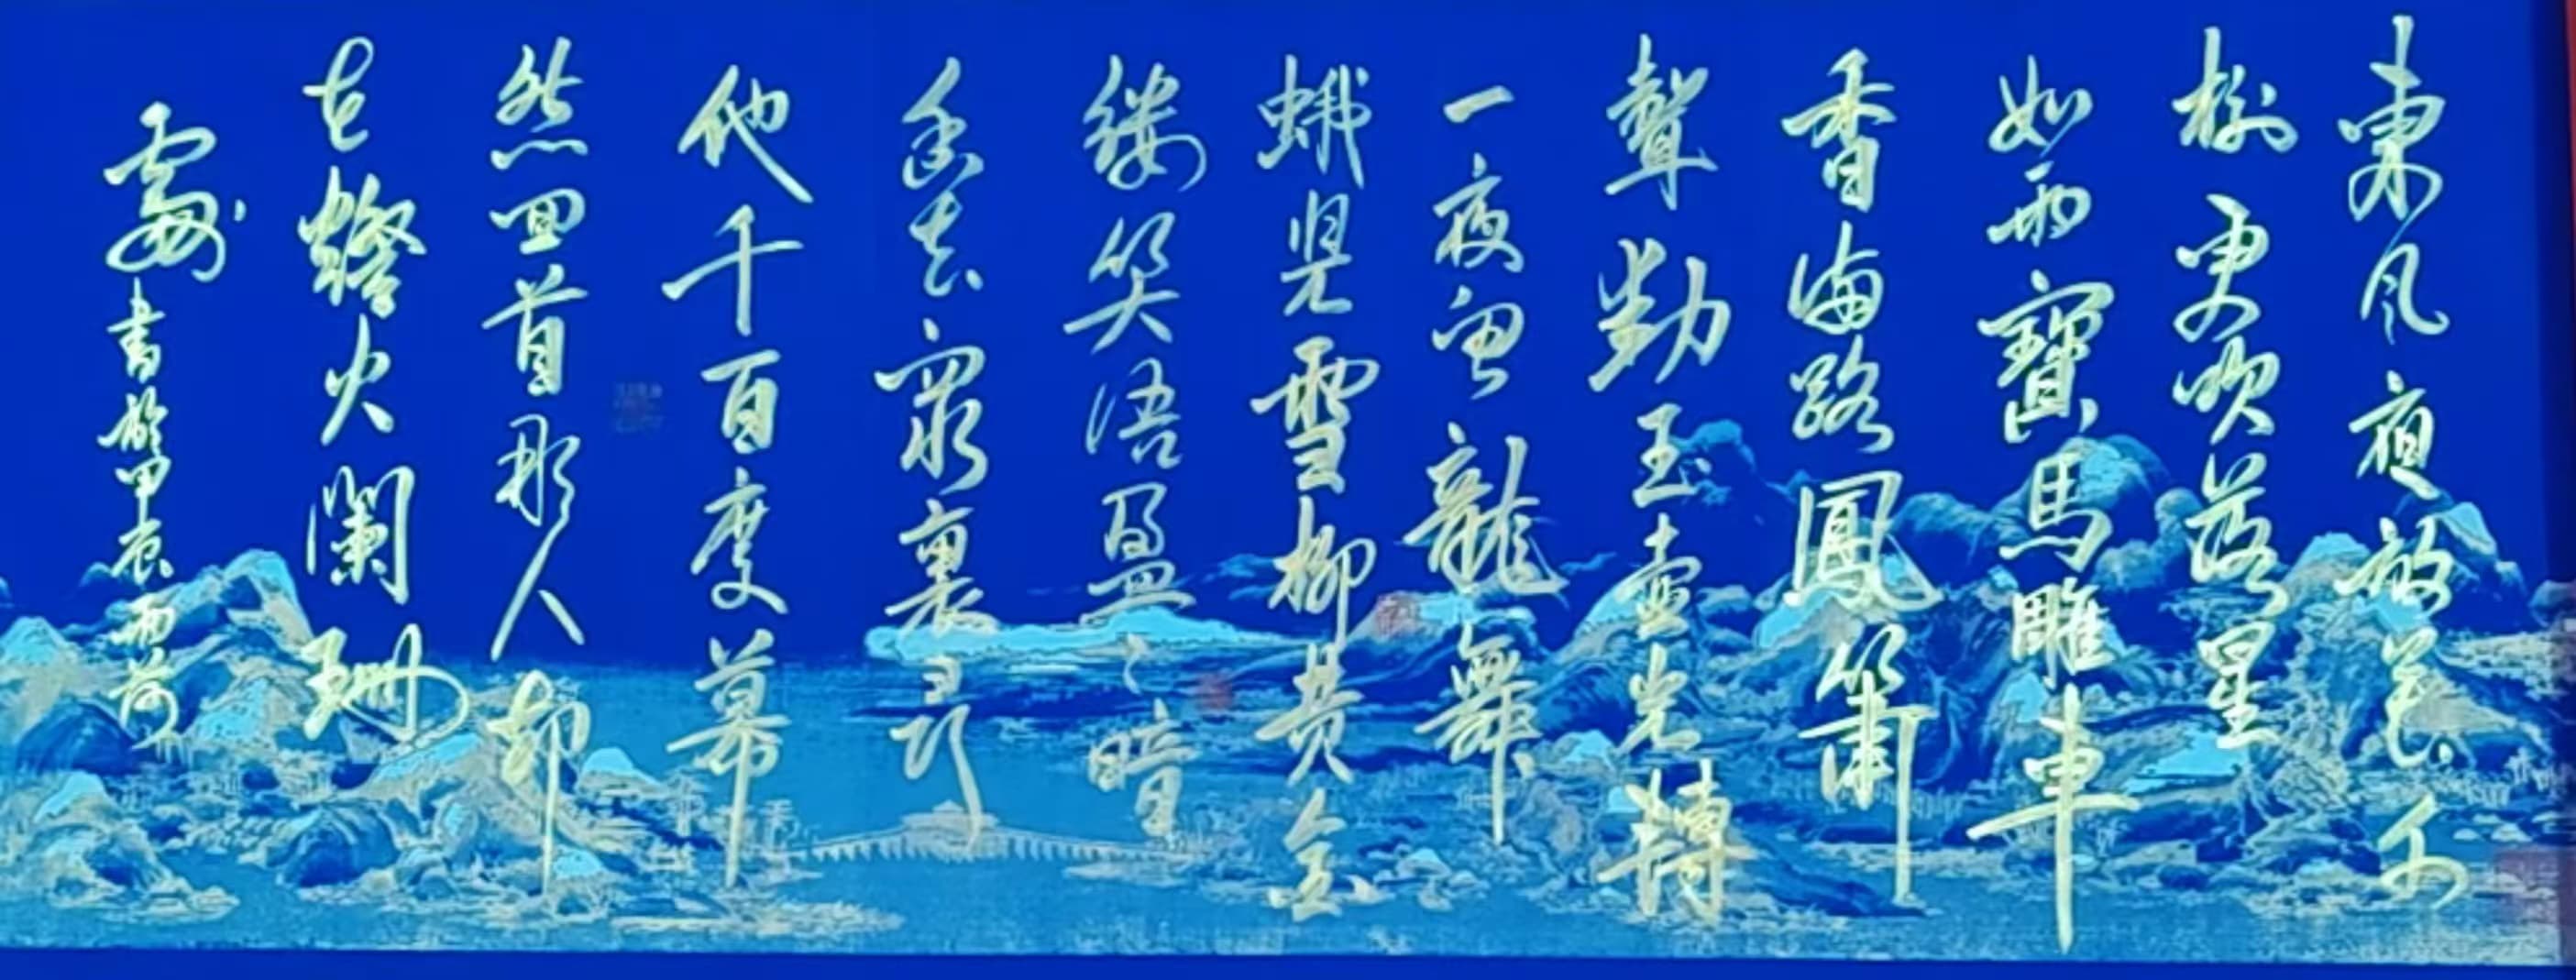 東風夜放花千
樹更吹落星
如雨寶馬雕車
香滿路鳳簫
聲動玉壺光轉
一夜魚龍舞
蛾兒雪柳黄金
縷笑語盈〻暗
香去眾裏尋
他千百度驀
然回首那人却
在燈火闌珊
處書於甲辰雨荷